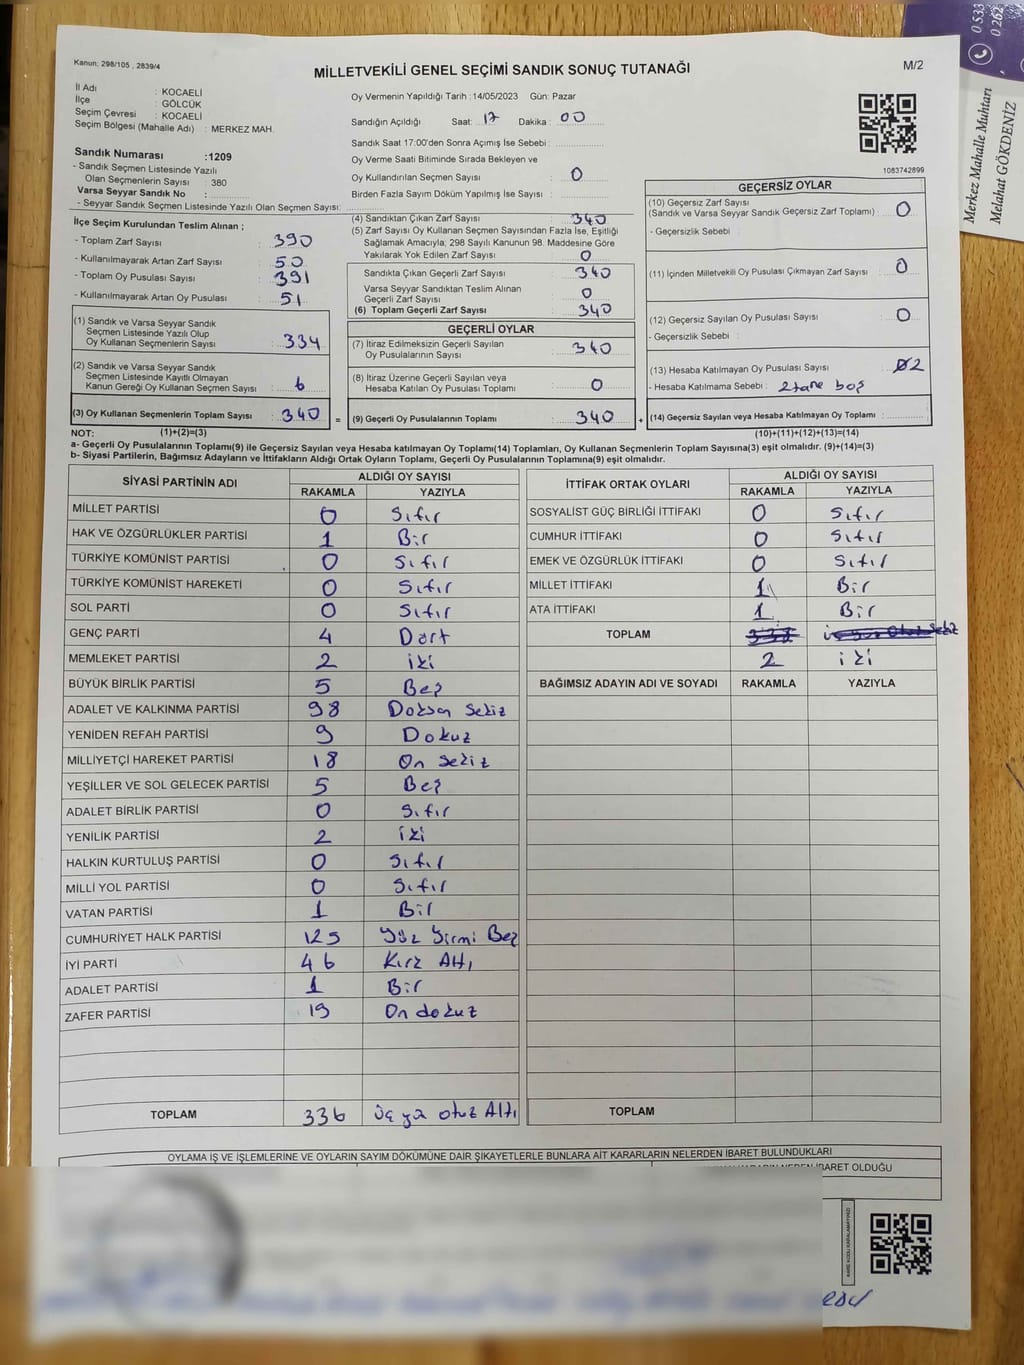 Kanun: 298/105 , 2839/4
MİLLETVEKİLİ GENEL SEÇİMİ SANDIK SONUÇ TUTANAĞI
M/2
İl Adı : KOCAELİ
İlçe : GÖLCÜK
Seçim Çevresi : KOCAELİ
Seçim Bölgesi (Mahalle Adı) : MERKEZ MAH.
Sandık Numarası :1209
- Sandık Seçmen Listesinde Yazılı
Olan Seçmenlerin Sayısı : 380
Varsa Seyyar Sandık No :
- Seyyar Sandık Seçmen Listesinde Yazılı Olan Seçmen Sayısı:
Oy Vermenin Yapıldığı Tarih :14/05/2023 Gün: Pazar
Sandığın Açıldığı Saat: 17 Dakika : 00
Sandık Saat 17:00'den Sonra Açımış İse Sebebi :
Oy Verme Saati Bitiminde Sırada Bekleyen ve
Oy Kullandırılan Seçmen Sayısı : 0
Birden Fazla Sayım Döküm Yapılmış İse Sayısı :
1083742899
0 533
0 262
Merkez Mahalle Muhtarı
Melahat GÖKDENİZ
İlçe Seçim Kurulundan Teslim Alınan ;
- Toplam Zarf Sayısı : 390
- Kullanılmayarak Artan Zarf Sayısı : 50
- Toplam Oy Pusulası Sayısı : 391
- Kullanılmayarak Artan Oy Pusulası : 51
(1) Sandık ve Varsa Seyyar Sandık
Seçmen Listesinde Yazılı Olup
Oy Kullanan Seçmenlerin Sayısı : 334
(2) Sandık ve Varsa Seyyar Sandık
Seçmen Listesinde Kayıtlı Olmayan
Kanun Gereği Oy Kullanan Seçmen Sayısı : 6
(3) Oy Kullanan Seçmenlerin Toplam Sayısı : 340 =
(4) Sandıktan Çıkan Zarf Sayısı : 340
(5) Zarf Sayısı Oy Kullanan Seçmen Sayısından Fazla İse, Eşitliği
Sağlamak Amacıyla; 298 Sayılı Kanunun 98. Maddesine Göre
Yakılarak Yok Edilen Zarf Sayısı : 0
Sandıkta Çıkan Geçerli Zarf Sayısı : 340
Varsa Seyyar Sandıktan Teslim Alınan
Geçerli Zarf Sayısı : 0
(6) Toplam Geçerli Zarf Sayısı : 340
GEÇERLİ OYLAR
(7) İtiraz Edilmeksizin Geçerli Sayılan
Oy Pusulalarının Sayısı : 340
(8) İtiraz Üzerine Geçerli Sayılan veya
Hesaba Katılan Oy Pusulası Toplamı : 0
(9) Geçerli Oy Pusulalarının Toplamı : 340 +
GEÇERSİZ OYLAR
(10) Geçersiz Zarf Sayısı
(Sandık ve Varsa Seyyar Sandık Geçersiz Zarf Toplamı) : 0
- Geçersizlik Sebebi :
(11) İçinden Milletvekili Oy Pusulası Çıkmayan Zarf Sayısı : 0
(12) Geçersiz Sayılan Oy Pusulası Sayısı : 0
- Geçersizlik Sebebi :
(13) Hesaba Katılmayan Oy Pusulası Sayısı : 2
- Hesaba Katılmama Sebebi : 2 tane boş
(14) Geçersiz Sayılan veya Hesaba Katılmayan Oy Toplamı :
NOT: (1)+(2)=(3) (10)+(11)+(12)+(13)=(14)
a- Geçerli Oy Pusulalarının Toplamı(9) ile Geçersiz Sayılan veya Hesaba katılmayan Oy Toplamı(14) Toplamları, Oy Kullanan Seçmenlerin Toplam Sayısına(3) eşit olmalıdır. (9)+(14)=(3)
b- Siyasi Partilerin, Bağımsız Adayların ve İttifakların Aldığı Ortak Oyların Toplamı, Geçerli Oy Pusulalarının Toplamına(9) eşit olmalıdır.
SİYASİ PARTİNİN ADI ALDIĞI OY SAYISI
RAKAMLA YAZIYLA
MİLLET PARTİSİ 0 Sıfır
HAK VE ÖZGÜRLÜKLER PARTİSİ 1 Bir
TÜRKİYE KOMÜNİST PARTİSİ 0 Sıfır
TÜRKİYE KOMÜNİST HAREKETİ 0 Sıfır
SOL PARTİ 0 Sıfır
GENÇ PARTİ 4 Dört
MEMLEKET PARTİSİ 2 iki
BÜYÜK BİRLİK PARTİSİ 5 Beş
ADALET VE KALKINMA PARTİSİ 98 Doksan Sekiz
YENİDEN REFAH PARTİSİ 9 Dokuz
MİLLİYETÇİ HAREKET PARTİSİ 18 On Sekiz
YEŞİLLER VE SOL GELECEK PARTİSİ 5 Beş
ADALET BİRLİK PARTİSİ 0 Sıfır
YENİLİK PARTİSİ 2 iki
HALKIN KURTULUŞ PARTİSİ 0 Sıfır
MİLLİ YOL PARTİSİ 0 Sıfır
VATAN PARTİSİ 1 Bir
CUMHURİYET HALK PARTİSİ 125 Yüz Yirmi Beş
İYİ PARTİ 46 Kırk Altı
ADALET PARTİSİ 1 Bir
ZAFER PARTİSİ 19 On dokuz
TOPLAM 336 üç yz otuz Altı
İTTİFAK ORTAK OYLARI ALDIĞI OY SAYISI
RAKAMLA YAZIYLA
SOSYALİST GÜÇ BİRLİĞİ İTTİFAKI 0 Sıfır
CUMHUR İTTİFAKI 0 Sıfır
EMEK VE ÖZGÜRLÜK İTTİFAKI 0 Sıfır
MİLLET İTTİFAKI 1 Bir
ATA İTTİFAKI 1 Bir
TOPLAM 338
2 iki
BAĞIMSIZ ADAYIN ADI VE SOYADI RAKAMLA YAZIYLA
TOPLAM
OYLAMA İŞ VE İŞLEMLERİNE VE OYLARIN SAYIM DÖKÜMÜNE DAİR ŞİKAYETLERLE BUNLARA AİT KARARLARIN NELERDEN İBARET BULUNDUKLARI
NEDEN İBARET OLDUĞU
KARE KODU KARALAMAYINIZ!